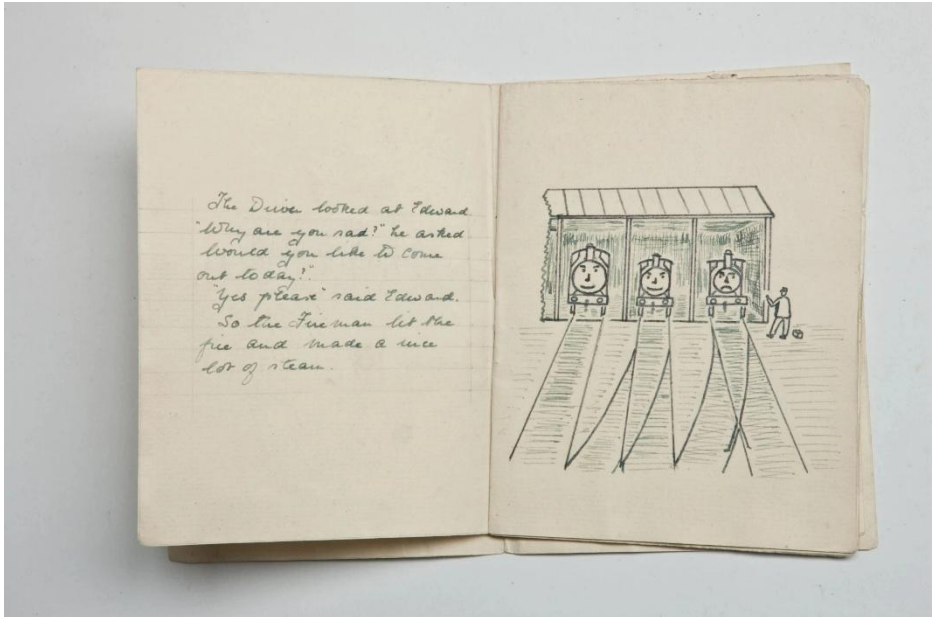 The Driver looked at Edward
"Why are you sad?" he asked
Would you like to come
out today?".
"Yes please" said Edward.
So the Fireman lit the
fire and made a nice
lot of steam.